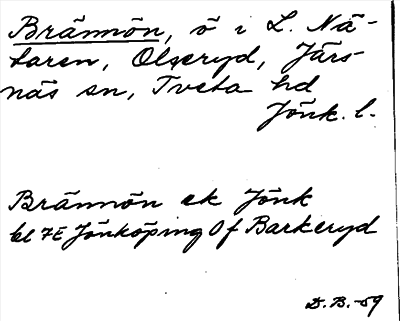 Brännön, ö i L. Nä-
taren, Olseryd, Järs-
näs sn, Tveta hd
Jönk. l.
Brännön ek Jönk
bl 7E Jönköping Of Barkeryd
D. B. -59